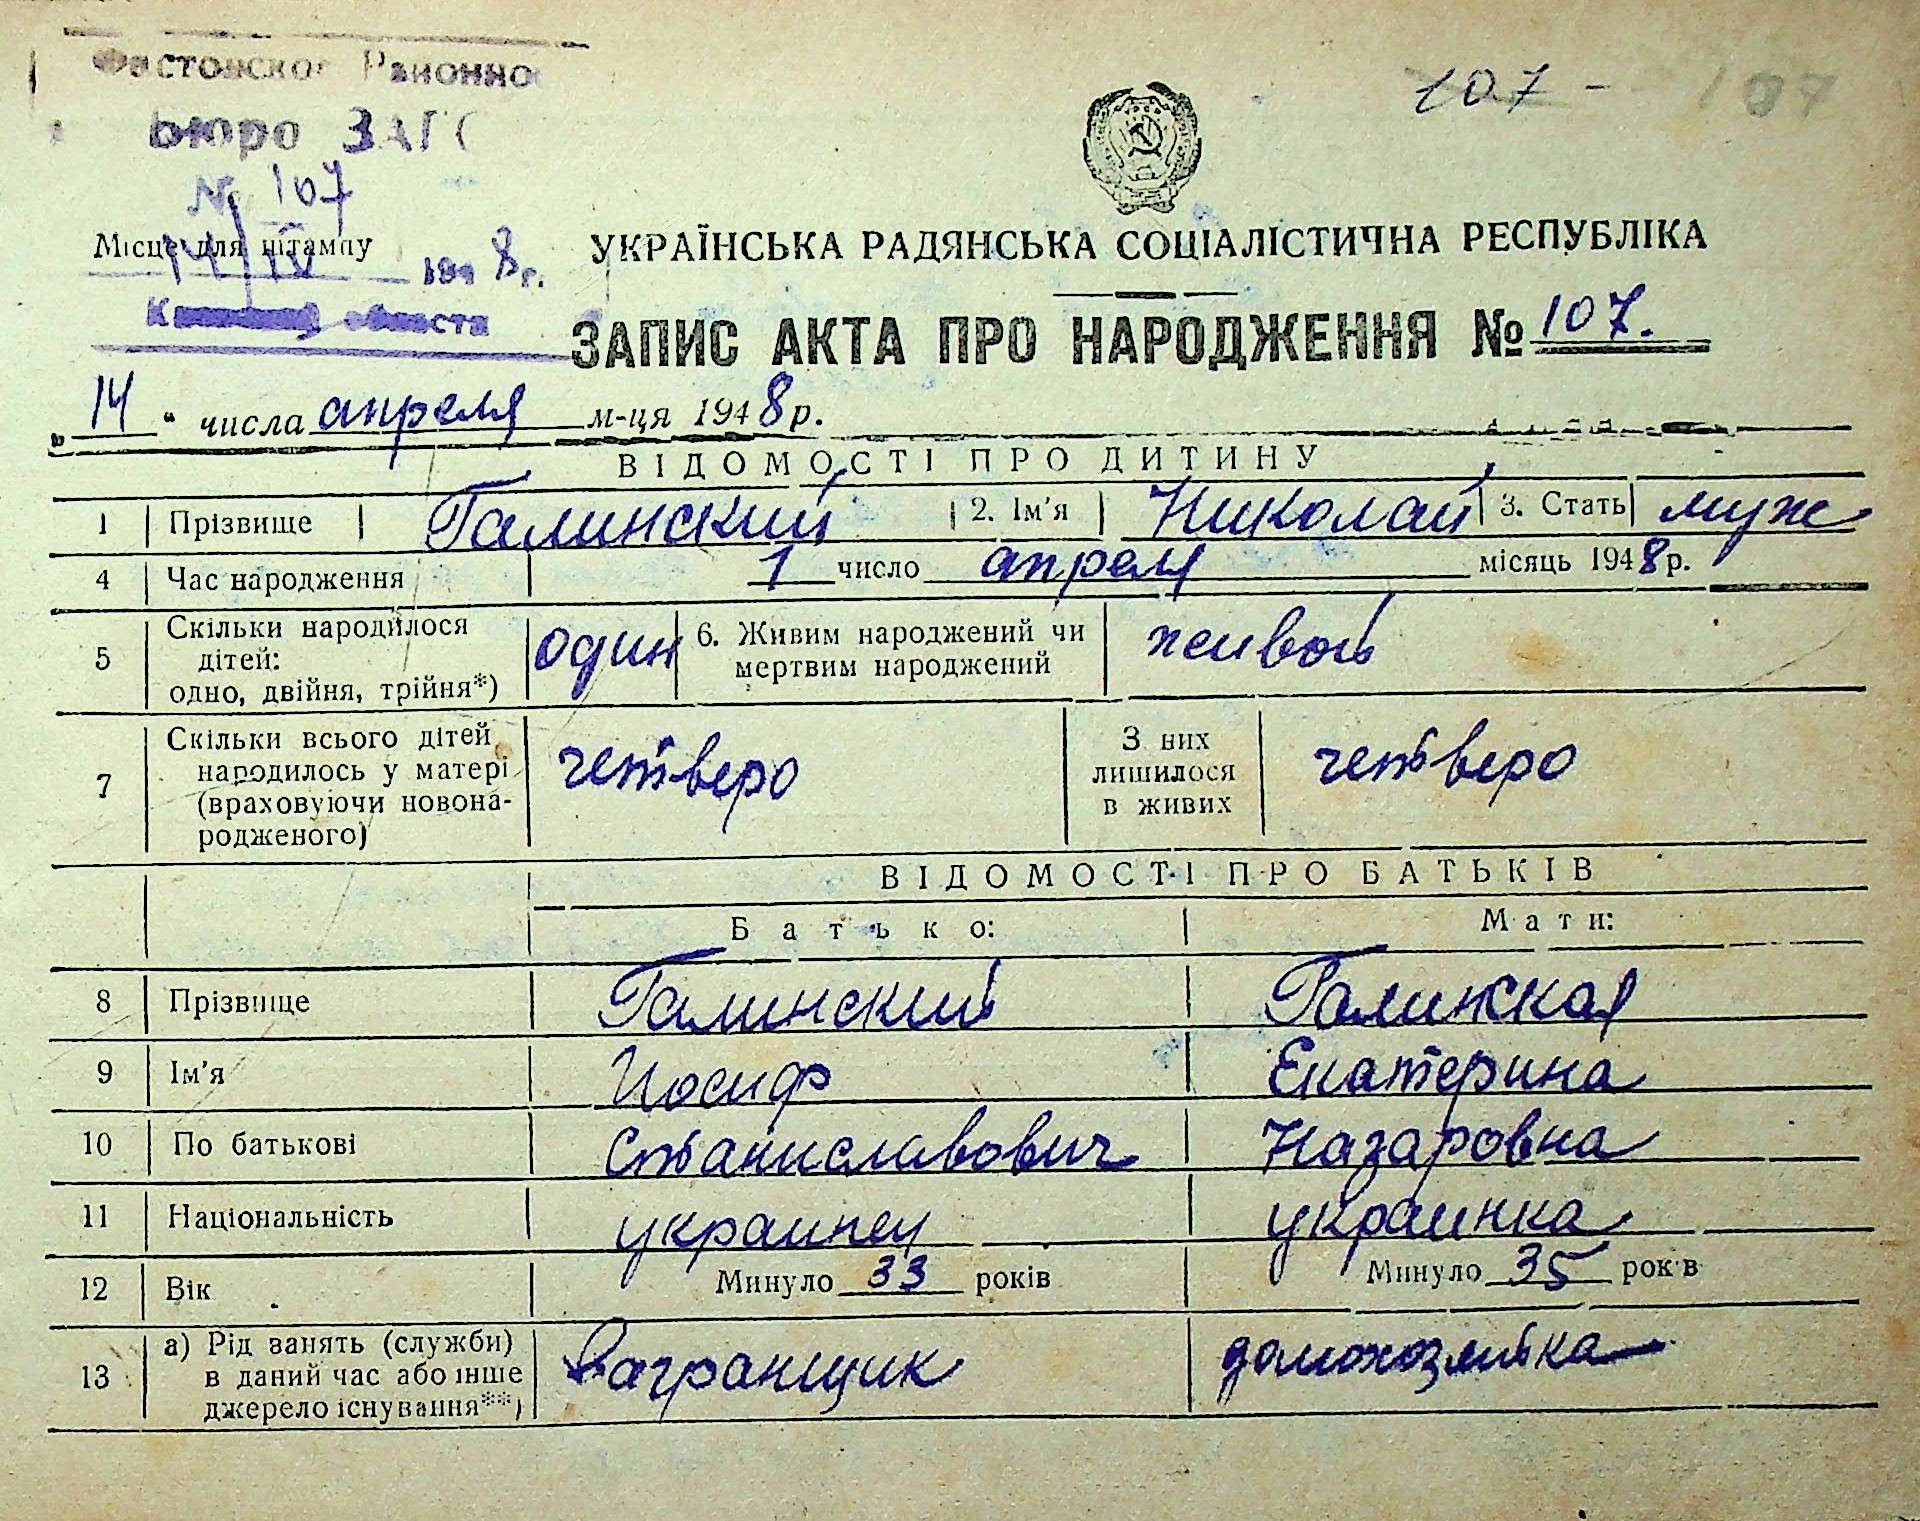 Районно
Бюро ЗАГС
№ 107
107 - 107
Місце для штампу
14/IV 1948г.
области
УКРАЇНСЬКА РАДЯНСЬКА СОЦІАЛІСТИЧНА РЕСПУБЛІКА
ЗАПИС АКТА ПРО НАРОДЖЕННЯ № 107.
„ 14 “ числа апреля м-ця 1948 р.
ВІДОМОСТІ ПРО ДИТИНУ
1 Прізвище Галинский 2. Ім'я Николай 3. Стать муж
4 Час народження 1 число апреля місяць 1948 р.
5 Скільки народилося дітей: одно, двійня, трійня*) один 6. Живим народжений чи мертвим народжений живой
7 Скільки всього дітей народилось у матері (враховуючи новонародженого) четверо З них лишилося в живих четверо
ВІДОМОСТІ ПРО БАТЬКІВ
Батько: Мати:
8 Прізвище Галинский Галинская
9 Ім'я Иосиф Екатерина
10 По батькові Станиславович Назаровна
11 Національність украинец украинка
12 Вік Минуло 33 років Минуло 35 років
13 а) Рід занять (служби) в даний час або інше джерело існування**) Вагранщик домохозяйка